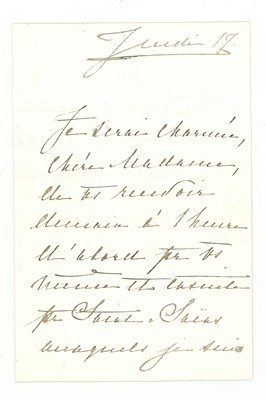 Jeudi 17.
Je serai charmée,
chère Madame,
de vs recevoir
demain à 1 heure
d'abord pr vs
même et ensuite
pr Saint-Saëns
auxquels je suis